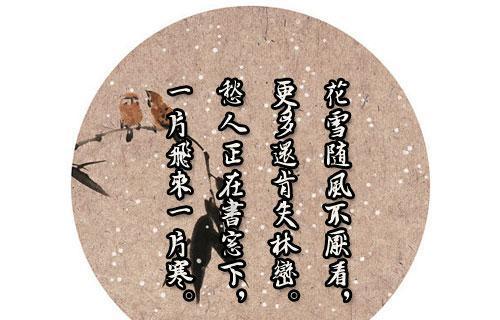 花雪隨風不厭看，
更多還肯失林巒。
愁人正在書窗下，
一片飛來一片寒。